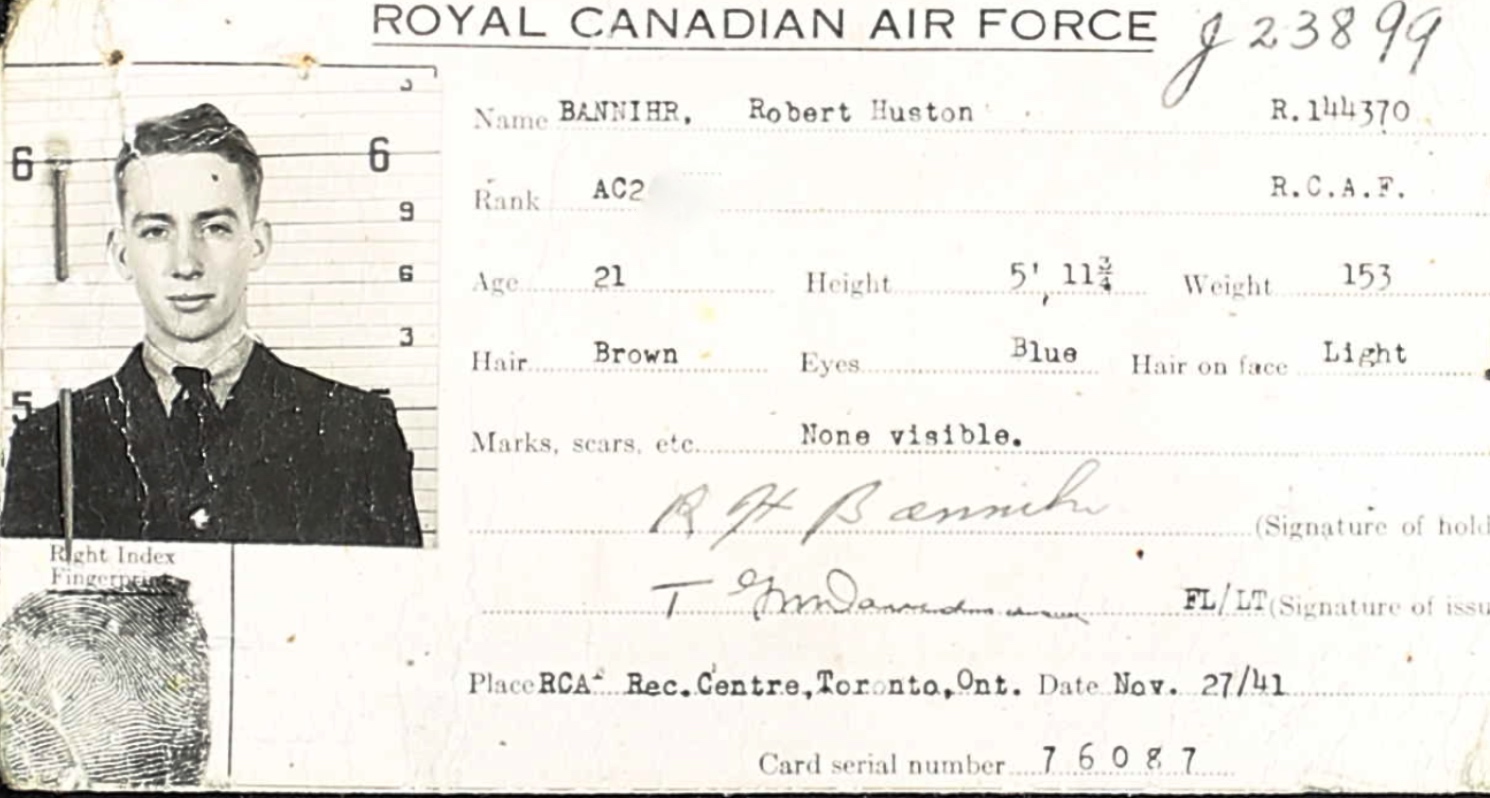 ROYAL CANADIAN AIR FORCE J23899
Name BANNIHR, Robert Huston R.144370
Rank AC2 R.C.A.F.
Age 21 Height 5' 11¾ Weight 153
Hair Brown Eyes Blue Hair on face Light
Marks, scars, etc. None visible.
R H Bannihr (Signature of hold
T FL/LT (Signature of issu
Place RCA Rec.Centre,Toronto,Ont. Date Nov. 27/41
Card serial number 76087
6 6
9
6
3
5
Right Index
Fingerprint